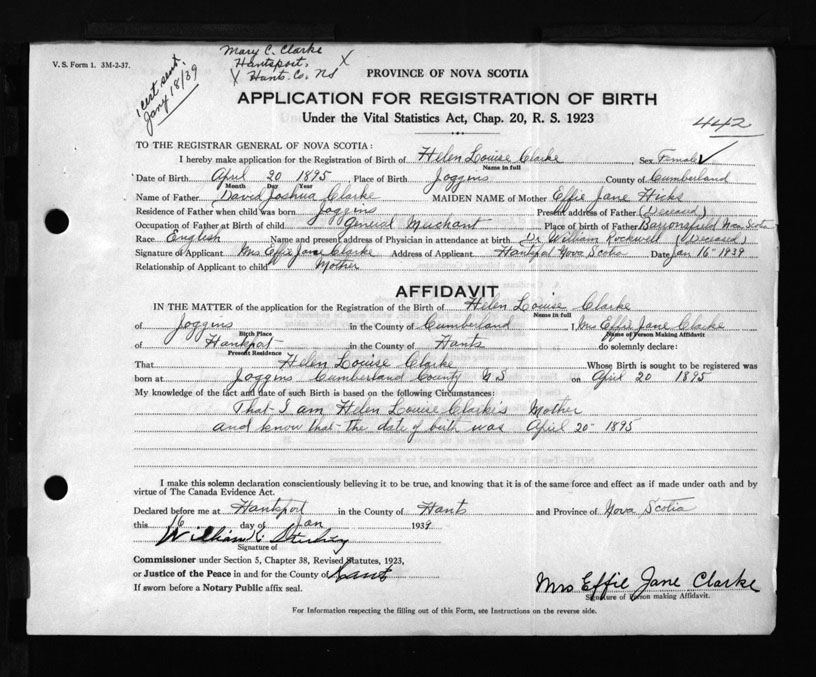 V. S. Form 1. 3M-2-37.
Mary C. Clarke
Hantsport, X
X Hants. Co, NS
cert sent
Jany 18/39
PROVINCE OF NOVA SCOTIA
APPLICATION FOR REGISTRATION OF BIRTH
Under the Vital Statistics Act, Chap. 20, R. S. 1923
442
TO THE REGISTRAR GENERAL OF NOVA SCOTIA:
I hereby make application for the Registration of Birth of Helen Louise Clarke, Sex Female ✓
Name in full
Date of Birth April 20 1895 Place of Birth Joggins County of Cumberland
Month Day Year
Name of Father David Joshua Clarke MAIDEN NAME of Mother Effie Jane Hicks
Residence of Father when child was born Joggins Present address of Father (Deceased)
Occupation of Father at Birth of child General Merchant Place of birth of Father Barronsfield Nova Scotia
Race English Name and present address of Physician in attendance at birth Dr William Rockwell (Deceased)
Signature of Applicant Mrs Effie Jane Clarke Address of Applicant Hantsport Nova Scotia Date Jan 16 1939
Relationship of Applicant to child Mother
AFFIDAVIT
IN THE MATTER of the application for the Registration of the Birth of Helen Louise Clarke
Name in full
of Joggins in the County of Cumberland I Mrs Effie Jane Clarke
Birth Place Name of Person Making Affidavit
of Hantsport in the County of Hants do solemnly declare:
Present Residence
That Helen Louise Clarke Whose Birth is sought to be registered was
born at Joggins Cumberland County N S on April 20 1895
My knowledge of the fact and date of such Birth is based on the following Circumstances:
That I am Helen Louise Clarke's Mother
and know that the date of birth was April 20 1895
I make this solemn declaration conscientiously believing it to be true, and knowing that it is of the same force and effect as if made under oath and by
virtue of The Canada Evidence Act.
Declared before me at Hantsport in the County of Hants and Province of Nova Scotia
this 16 day of Jan 1939
William K.
Signature of
Commissioner under Section 5, Chapter 38, Revised Statutes, 1923,
or Justice of the Peace in and for the County of Hants
If sworn before a Notary Public affix seal.
Mrs Effie Jane Clarke
Signature of Person making Affidavit.
For Information respecting the filling out of this Form, see Instructions on the reverse side.